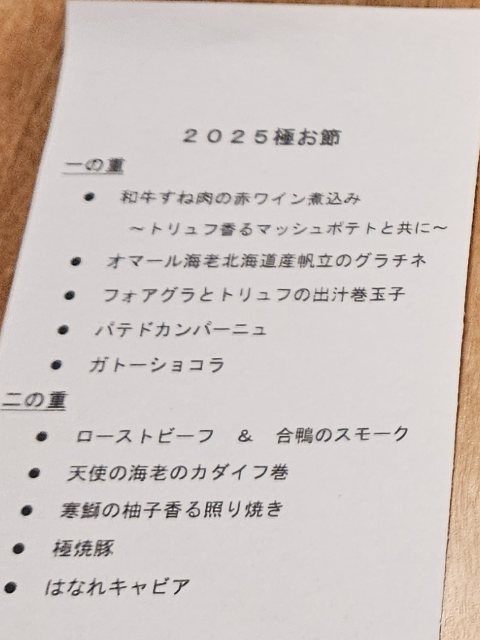 ２０２５極お節
一の重
● 和牛すね肉の赤ワイン煮込み
～トリュフ香るマッシュポテトと共に～
● オマール海老北海道産帆立のグラチネ
● フォアグラとトリュフの出汁巻玉子
● パテドカンパーニュ
● ガトーショコラ
二の重
● ローストビーフ　＆　合鴨のスモーク
● 天使の海老のカダイフ巻
● 寒鰤の柚子香る照り焼き
● 極焼豚
● はなれキャビア